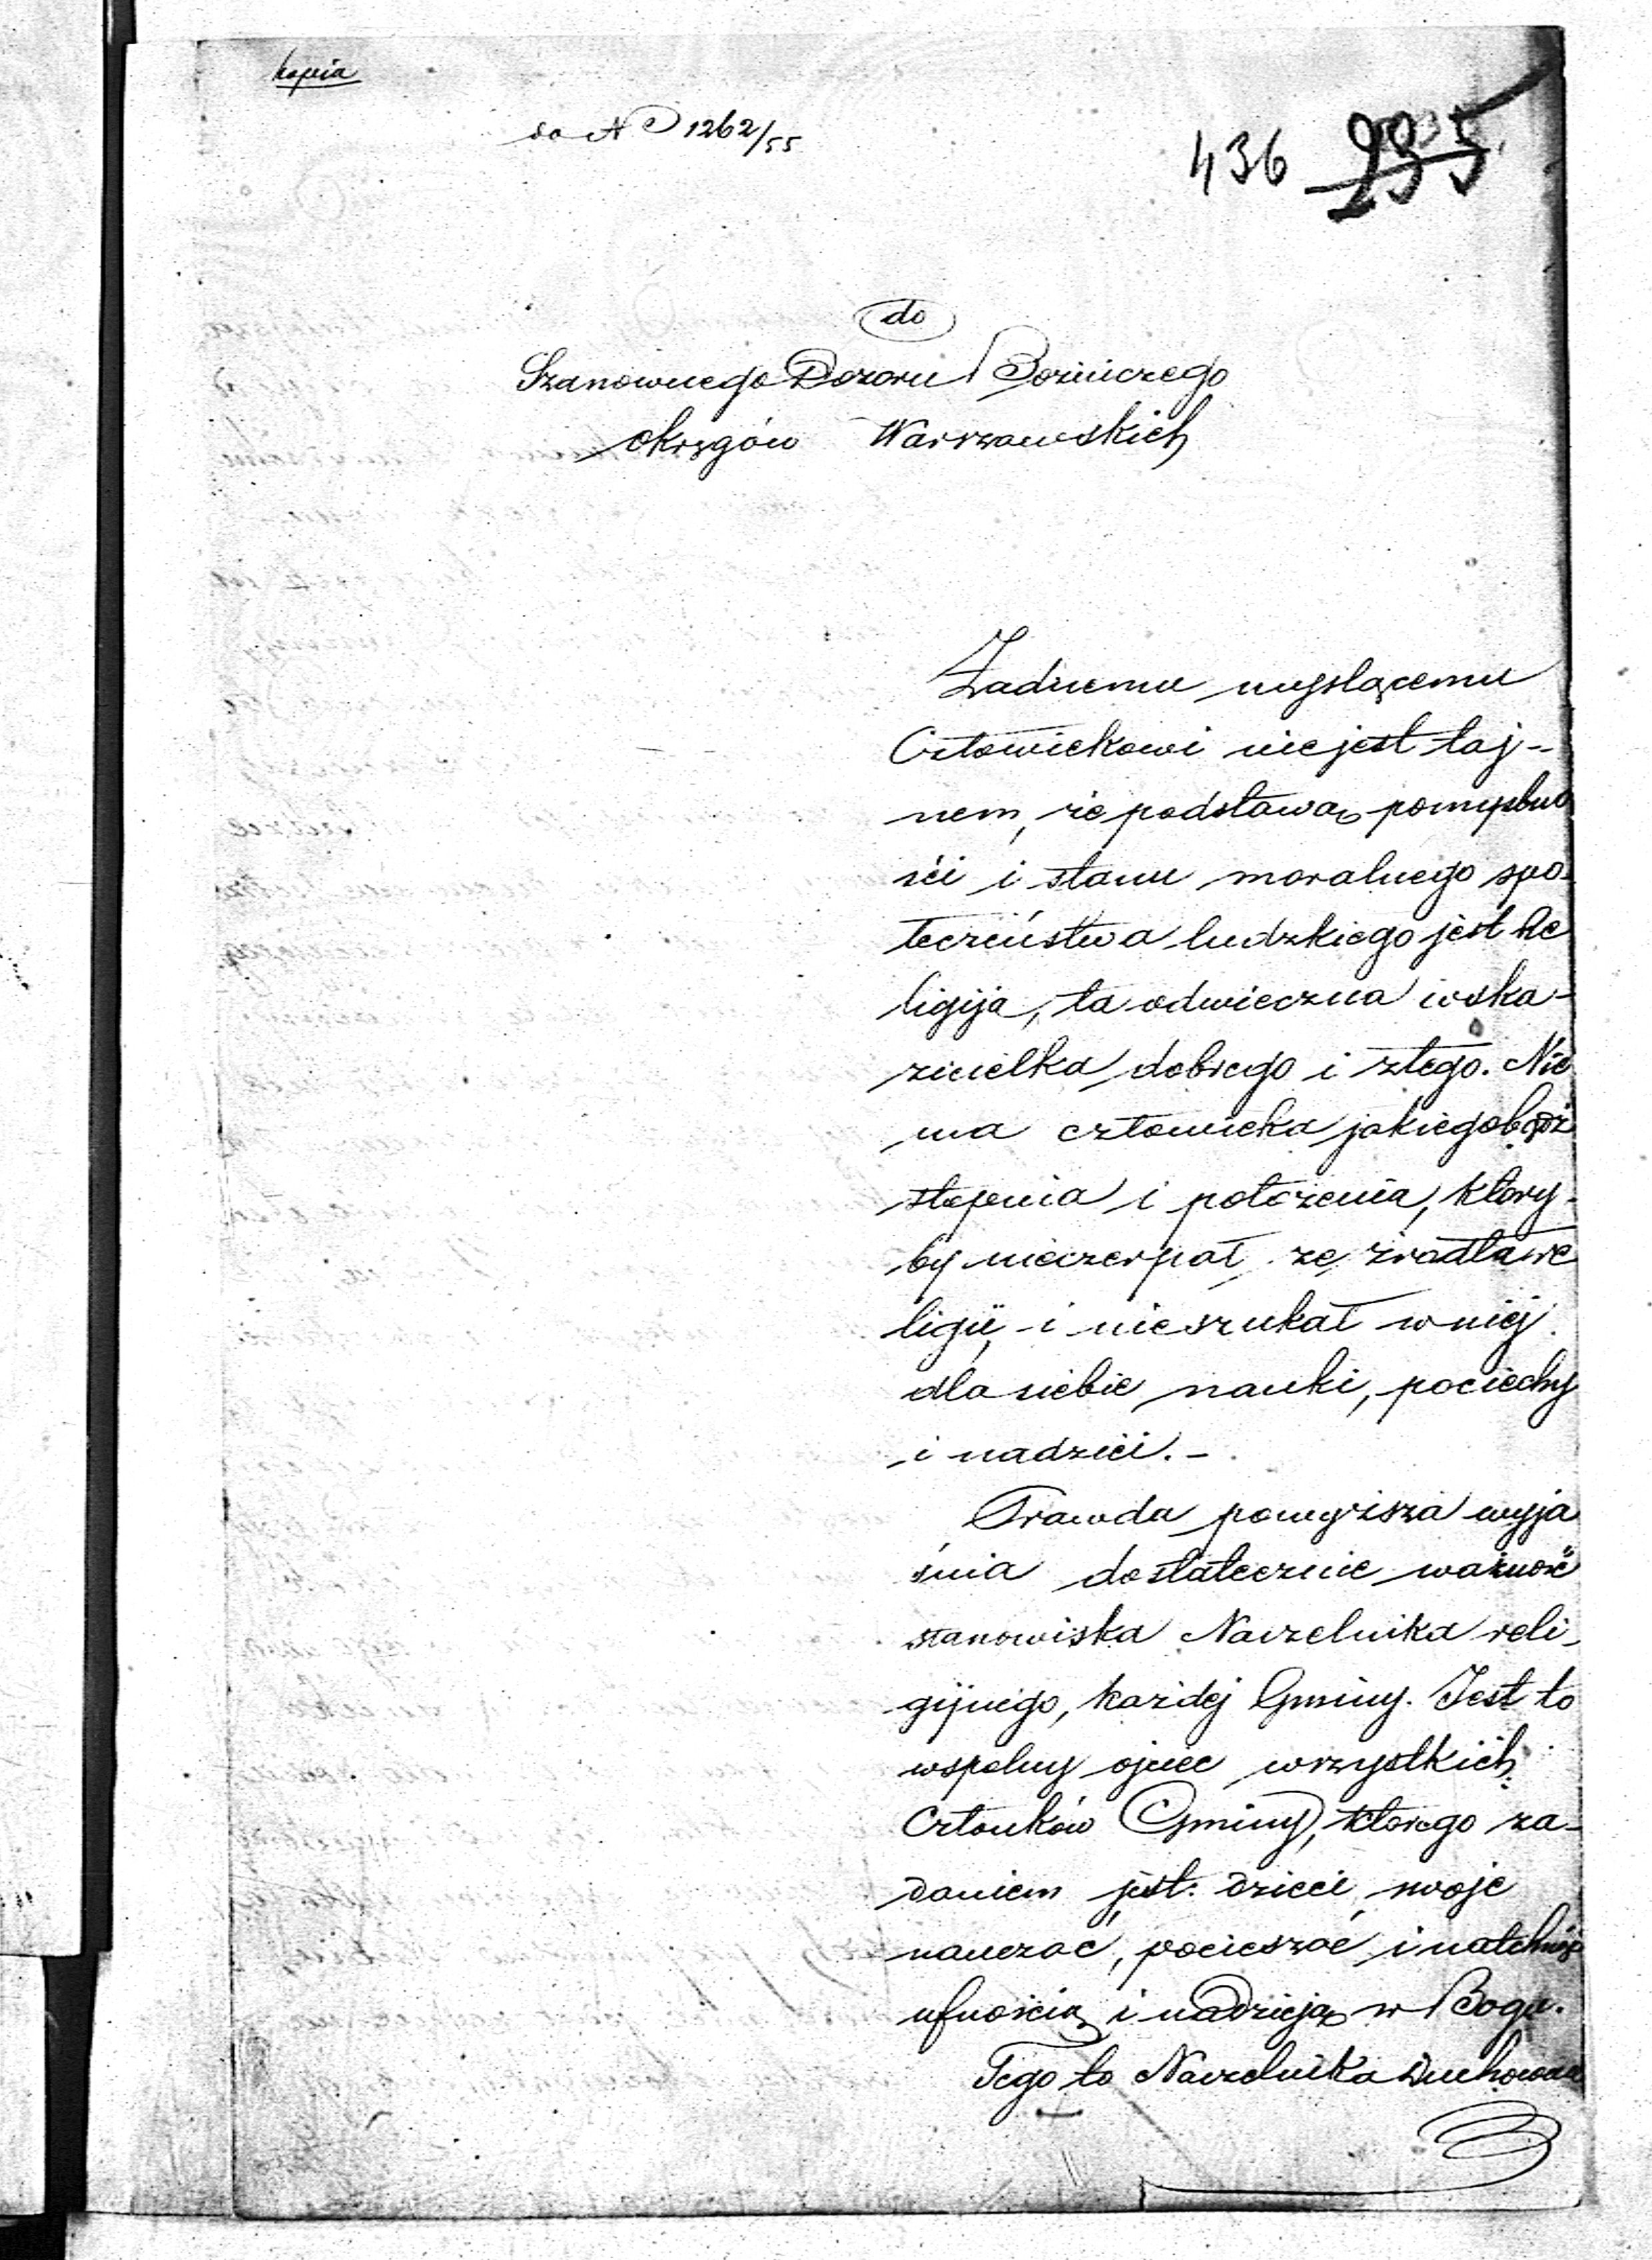 kopia
do No 1262/55
436 235
do
Szanownego Dozoru Bożniczego
Okręgów Warszawskich
Żadnemu myslącemu
Człowiekowi nie jest taj-
nem, że podstawą pomyslno
ści i stanu moralnego spo-
łeczeństwa ludzkiego jest Re
ligija, ta odwieczna wska-
zicielka dobrego i złego. Nie
ma człowieka jakiegobądź
stopnia i położenia, ktory-
by nieczerpał ze zrodła re
ligii, i nieszukał w niej
dla siebie nauki, pociechy
i nadziei. -
Prawda powyższa wyja
śnia dostatecznie ważność
stanowiska Naczelnika reli-
gijnego, każdej Gminy. Jest to
wspolny ojciec wszystkich
Członków Gminy, ktorego za-
daniem jest: dzieci swoje
nauczać, pocieszać i natchnąć
ufnością i nadzieją w Bogu.
Tego to Naczelnika Duchowne